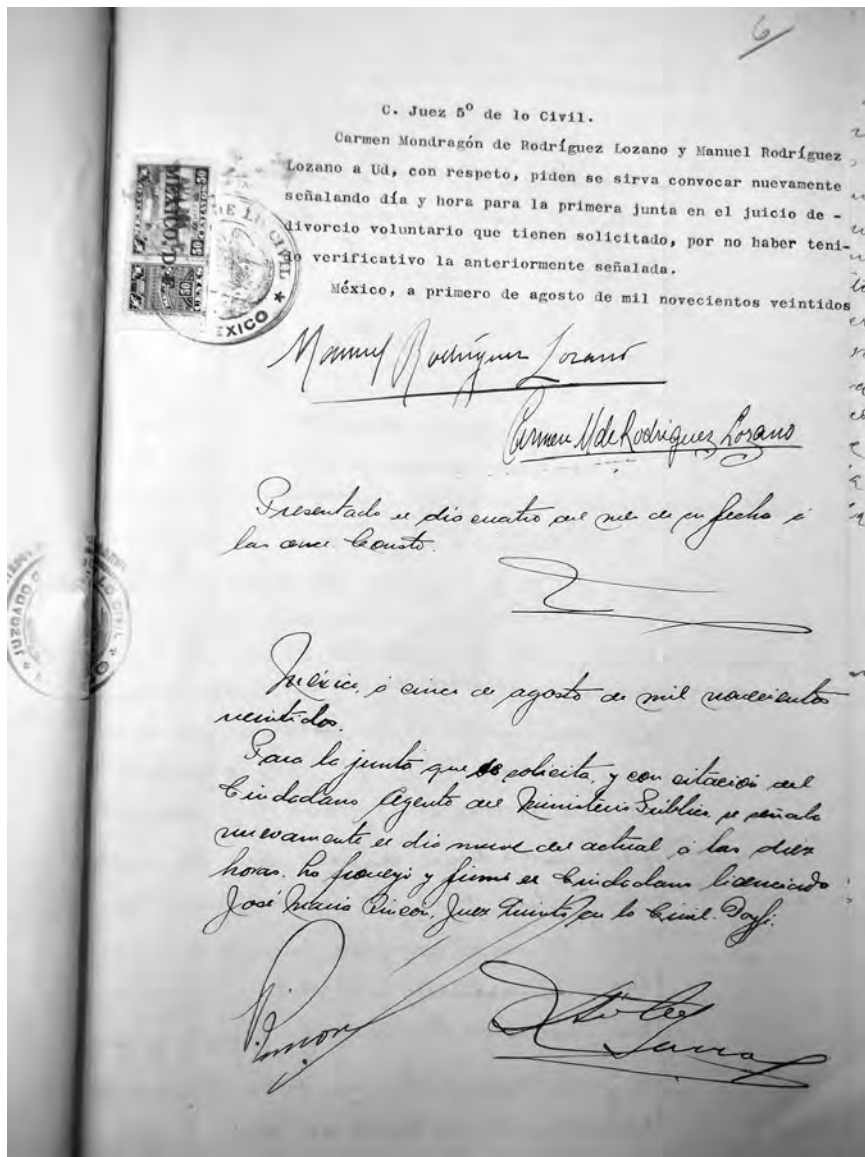 6
C. Juez 5º de lo Civil.
Carmen Mondragón de Rodríguez Lozano y Manuel Rodríguez
Lozano a Ud, con respeto, piden se sirva convocar nuevamente
señalando día y hora para la primera junta en el juicio de -
divorcio voluntario que tienen solicitado, por no haber teni-
do verificativo la anteriormente señalada.
México, a primero de agosto de mil novecientos veintidos
MEXICO, D
50 CENTAVOS 50
DE LO CIVIL
MEXICO
Manuel Rodríguez Lozano
Carmen M de Rodriguez Lozano
Presentado el dia cuatro del mes de su fecha á
las once. Consto.
LO CIVIL
JUZGADO
México, á cinco de agosto de mil novecientos
veintidos.
Para la junta que se solicita, y con citación del
Ciudadano Agente del Ministerio Público, se señala
nuevamente el dia nueve del actual á las diez
horas. Lo proveyó y firmó el Ciudadano licenciado
José María Rincón, Juez Quinto de lo Civil. Doy fé.
Rincon